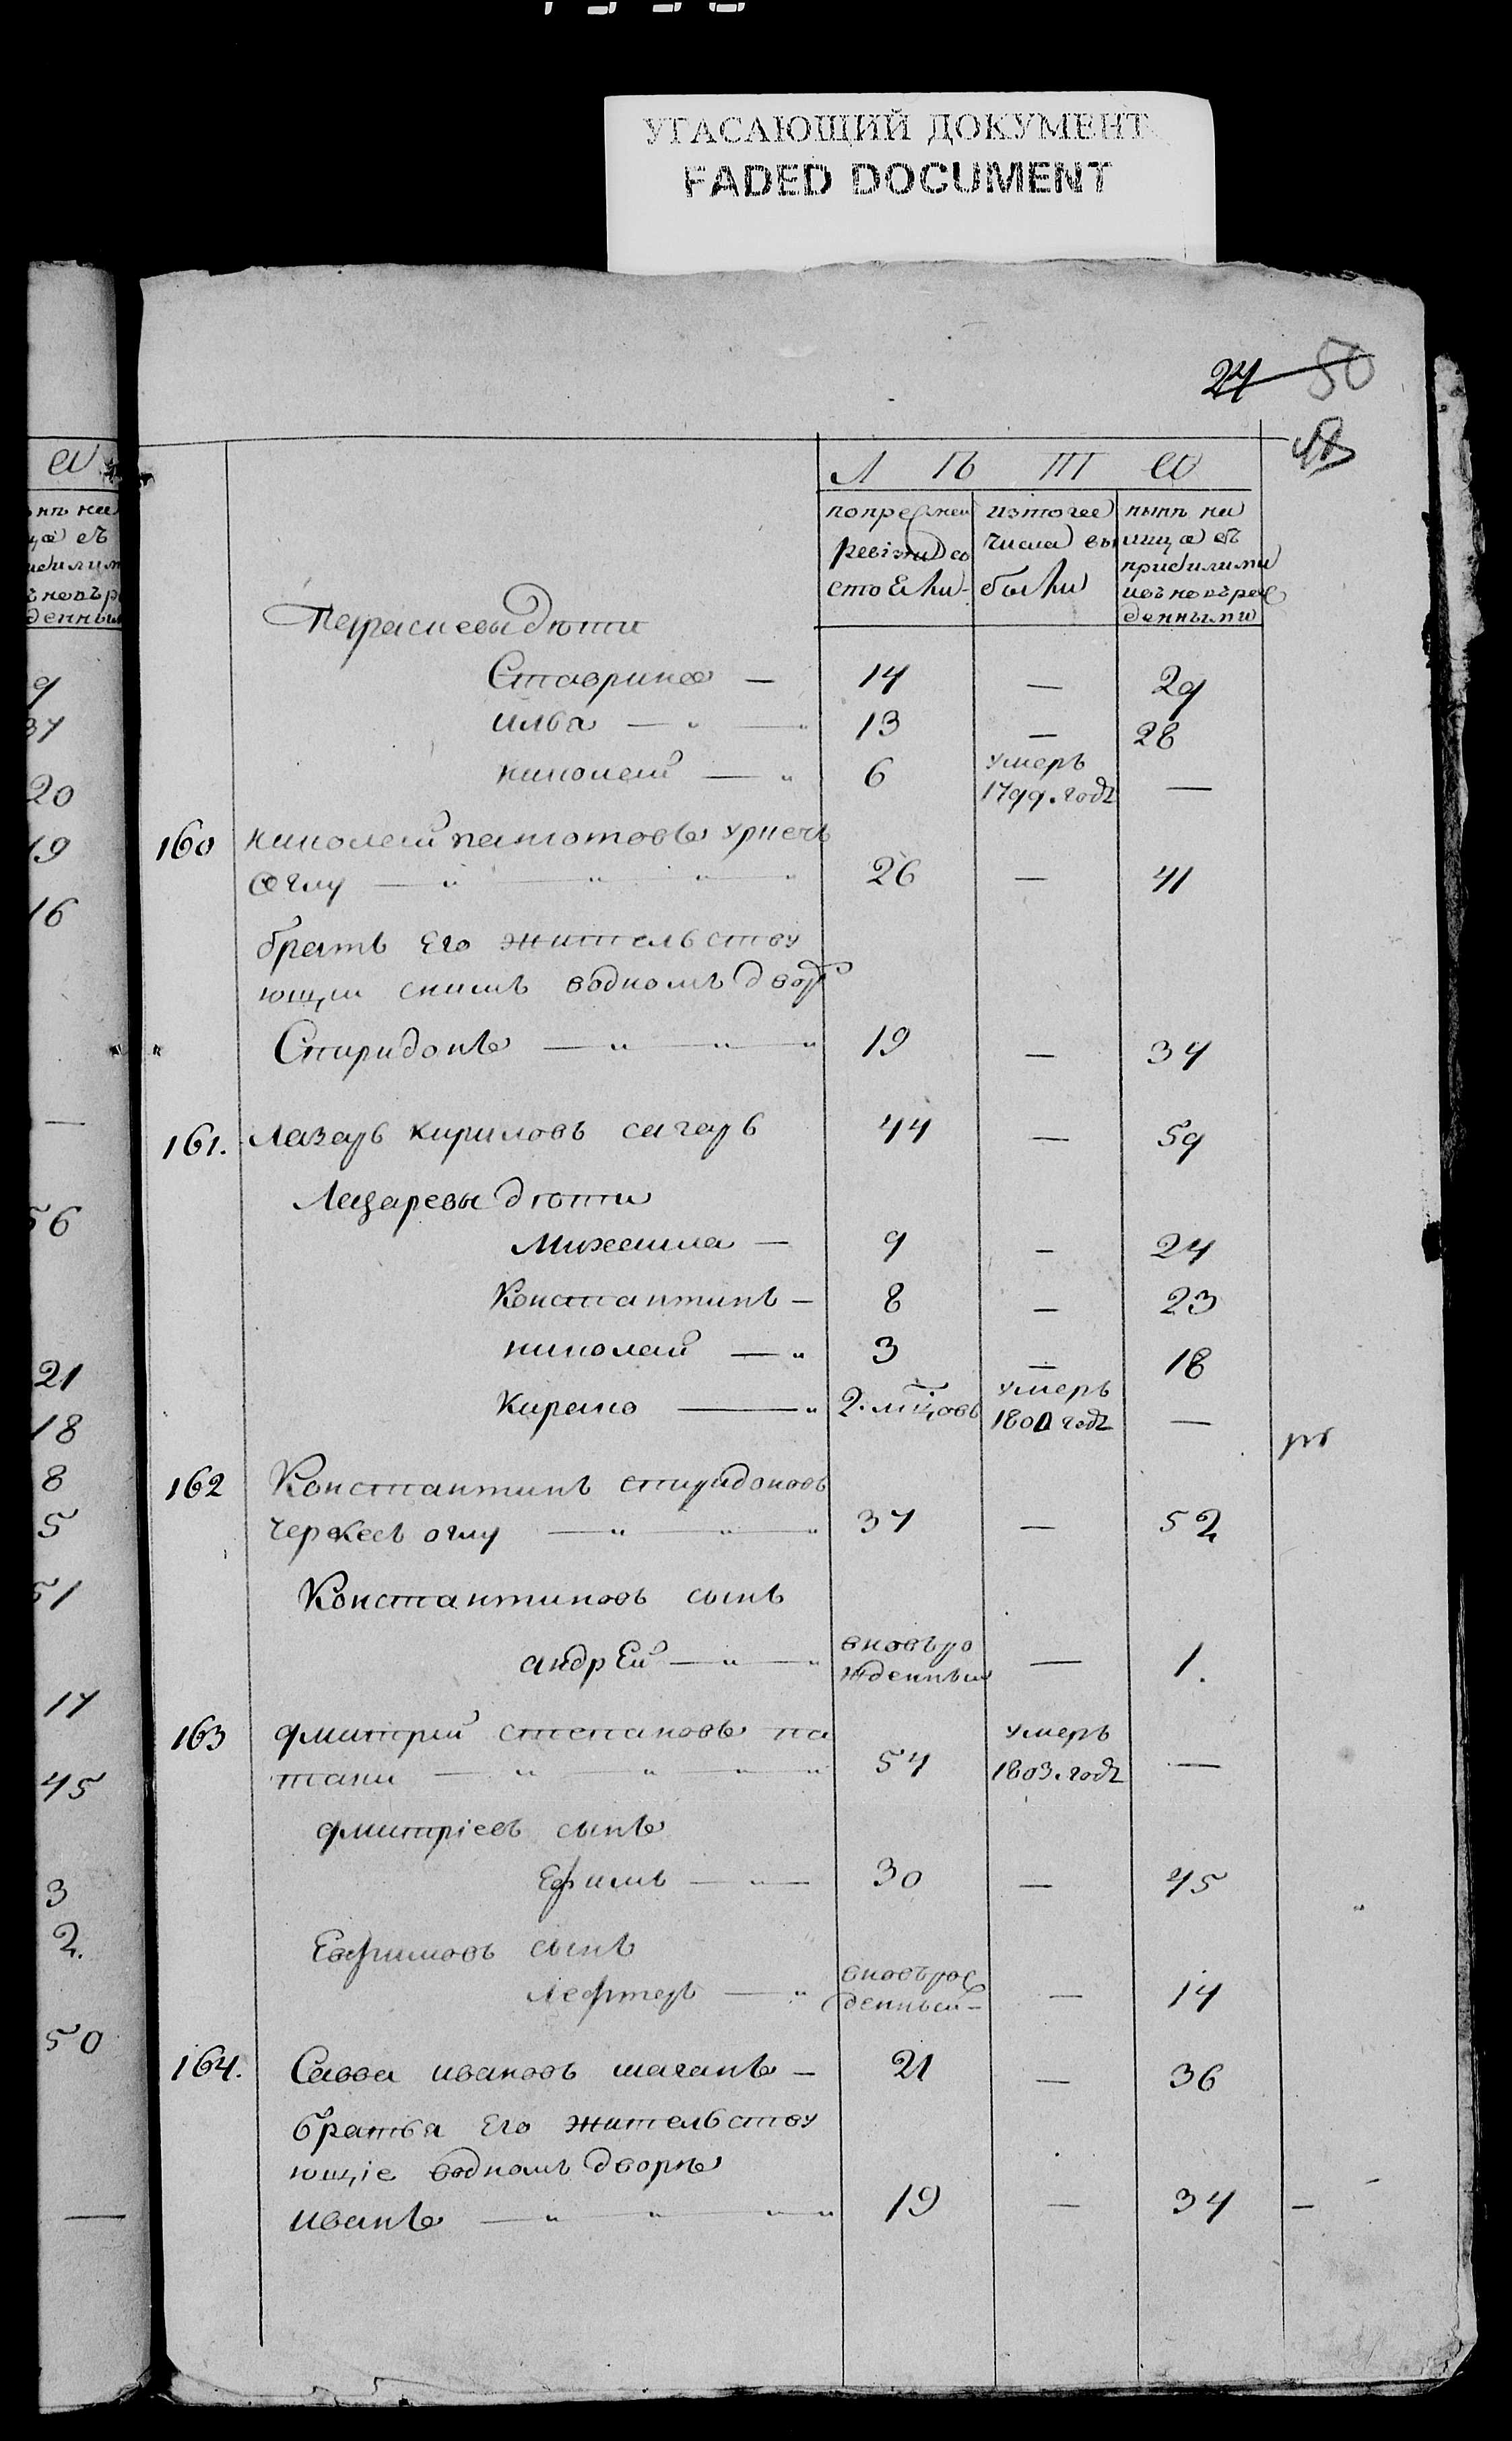 УГАСАЮЩИЙ ДОКУМЕНТ
FADED DOCUMENT
24 50
Л Ѣ Т А
попрежней ревізіи состояли
изтого числа выбыли
нынѣ налицо съ прибылими новорожденными
дѣти
Ставрино — 14 — 29
илья — 13 — 28
николай — 6 умеръ 1799. года —
160 николай панаіотовъ
оглу — 26 — 41
братъ его жительству
ющий снимъ водномъ двор
Спиридонъ — 19 — 34
161. Лазарь кириловъ сагарь 44 — 59
Лазаревы дѣти
Михаила — 9 — 24
Константинъ — 8 — 23
николай — 3 — 18
Кирано — 2. мцовъ умеръ 1800 года —
162 Константинъ спиридоновъ
Черкесъ оглу — 37 — 52
Константиновъ сынъ
андрей — вновьрожденный — 1.
163 дмитрий степановъ па
тани — 54 умеръ 1803. года —
дмитріевъ сынъ
Ефимъ — 30 — 45
Ефимовъ сынъ
Лефтеръ — вновьрожденный — 14
164. Савва ивановъ шаганъ — 21 — 36
братья его жительству
ющіе водномъ дворѣ
иванъ — 19 — 34 —
9
37
20
19
16
—
56
21
18
8
5
51
17
45
3
2.
50
—